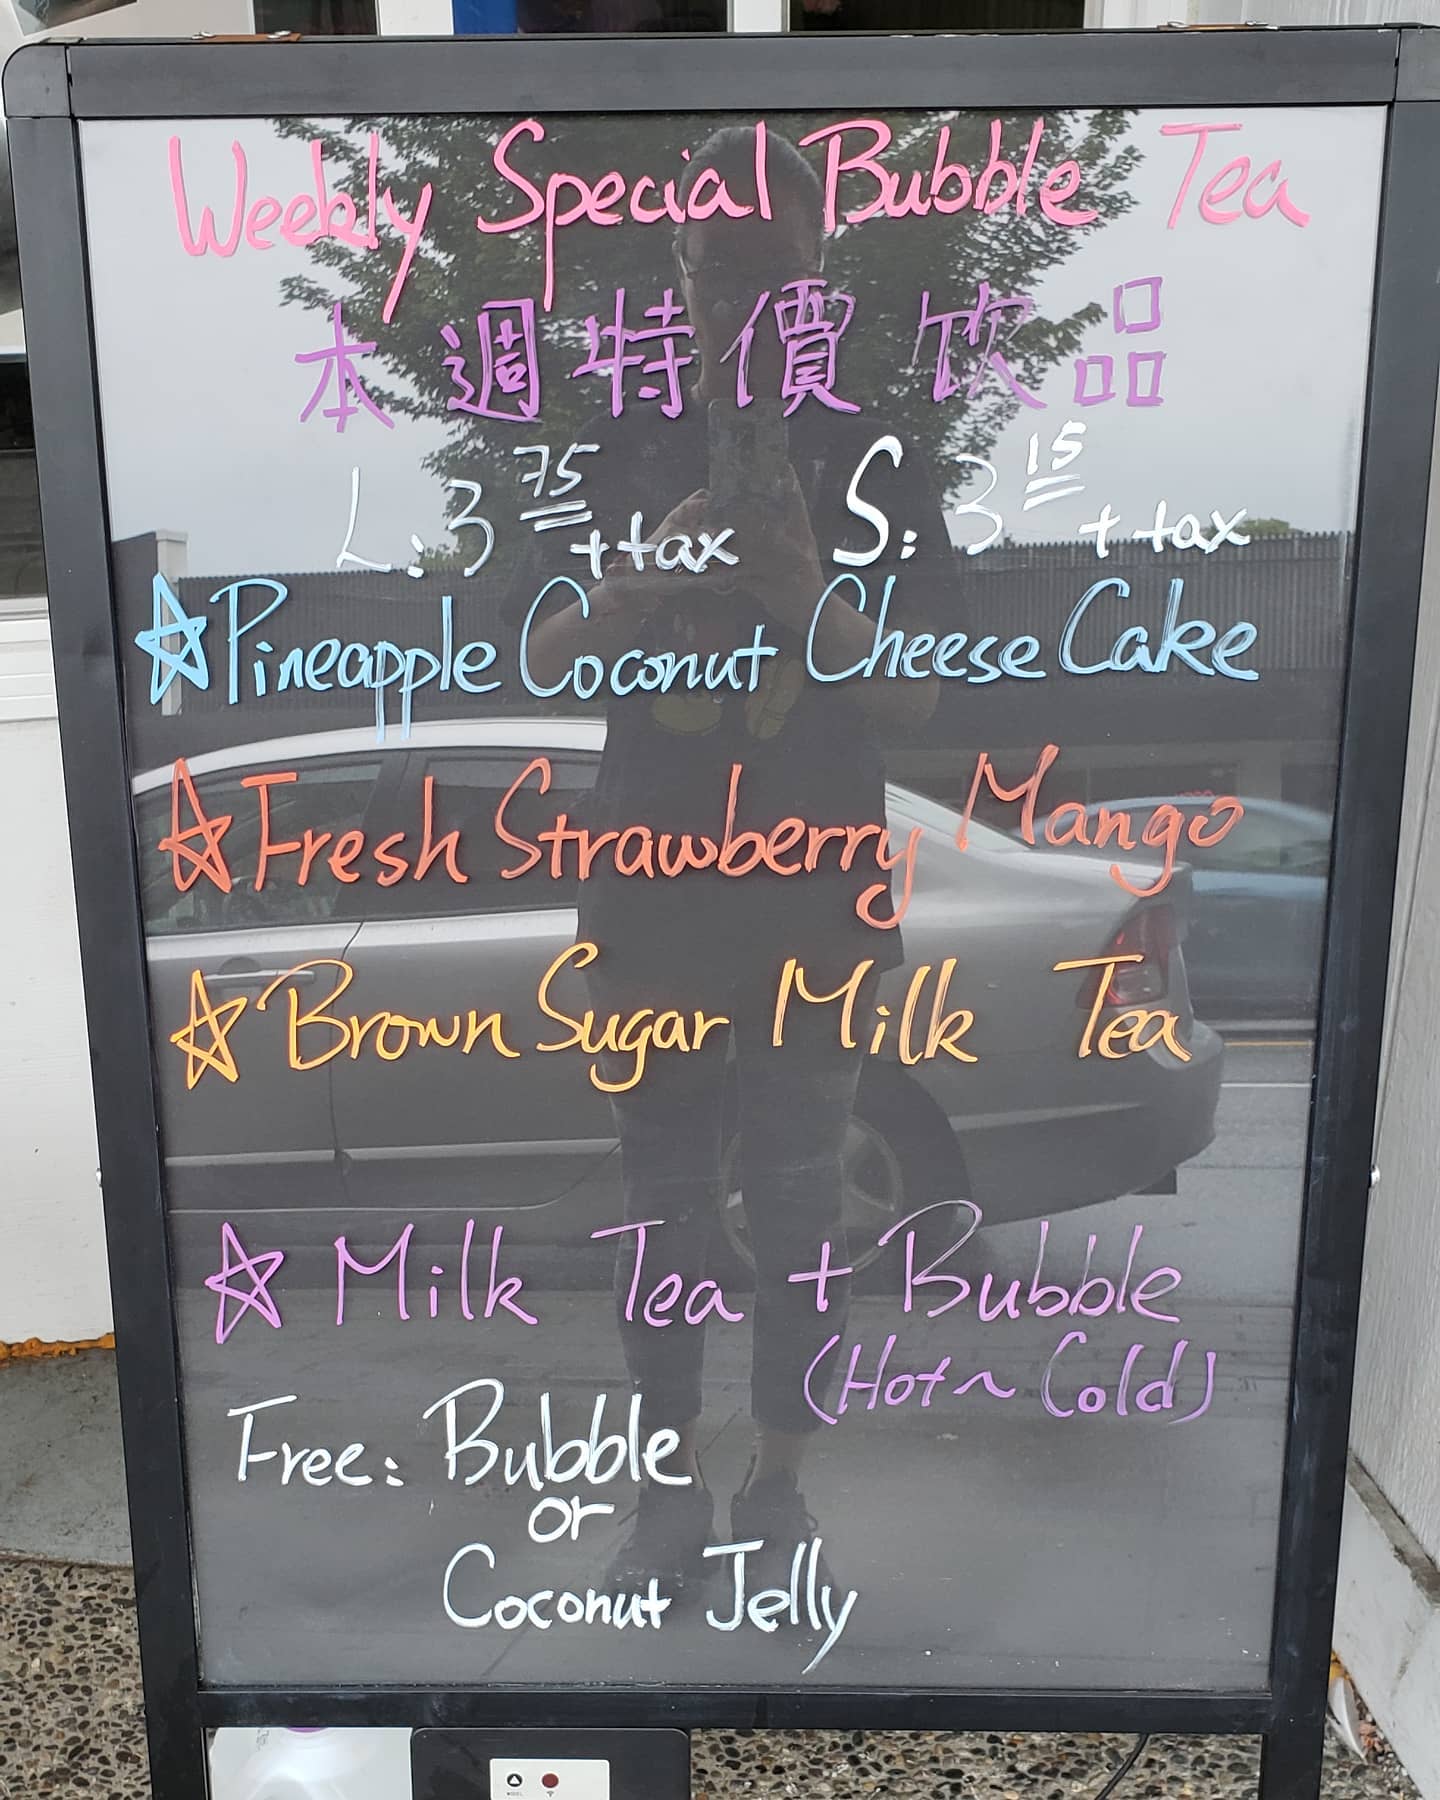 Weekly Special Bubble Tea
本週特價飲品
L: 3 75 + tax S: 3 15 + tax
☆Pineapple Coconut Cheese Cake
☆Fresh Strawberry Mango
☆Brown Sugar Milk Tea
☆Milk Tea + Bubble
(Hot~Cold)
Free: Bubble
or
Coconut Jelly